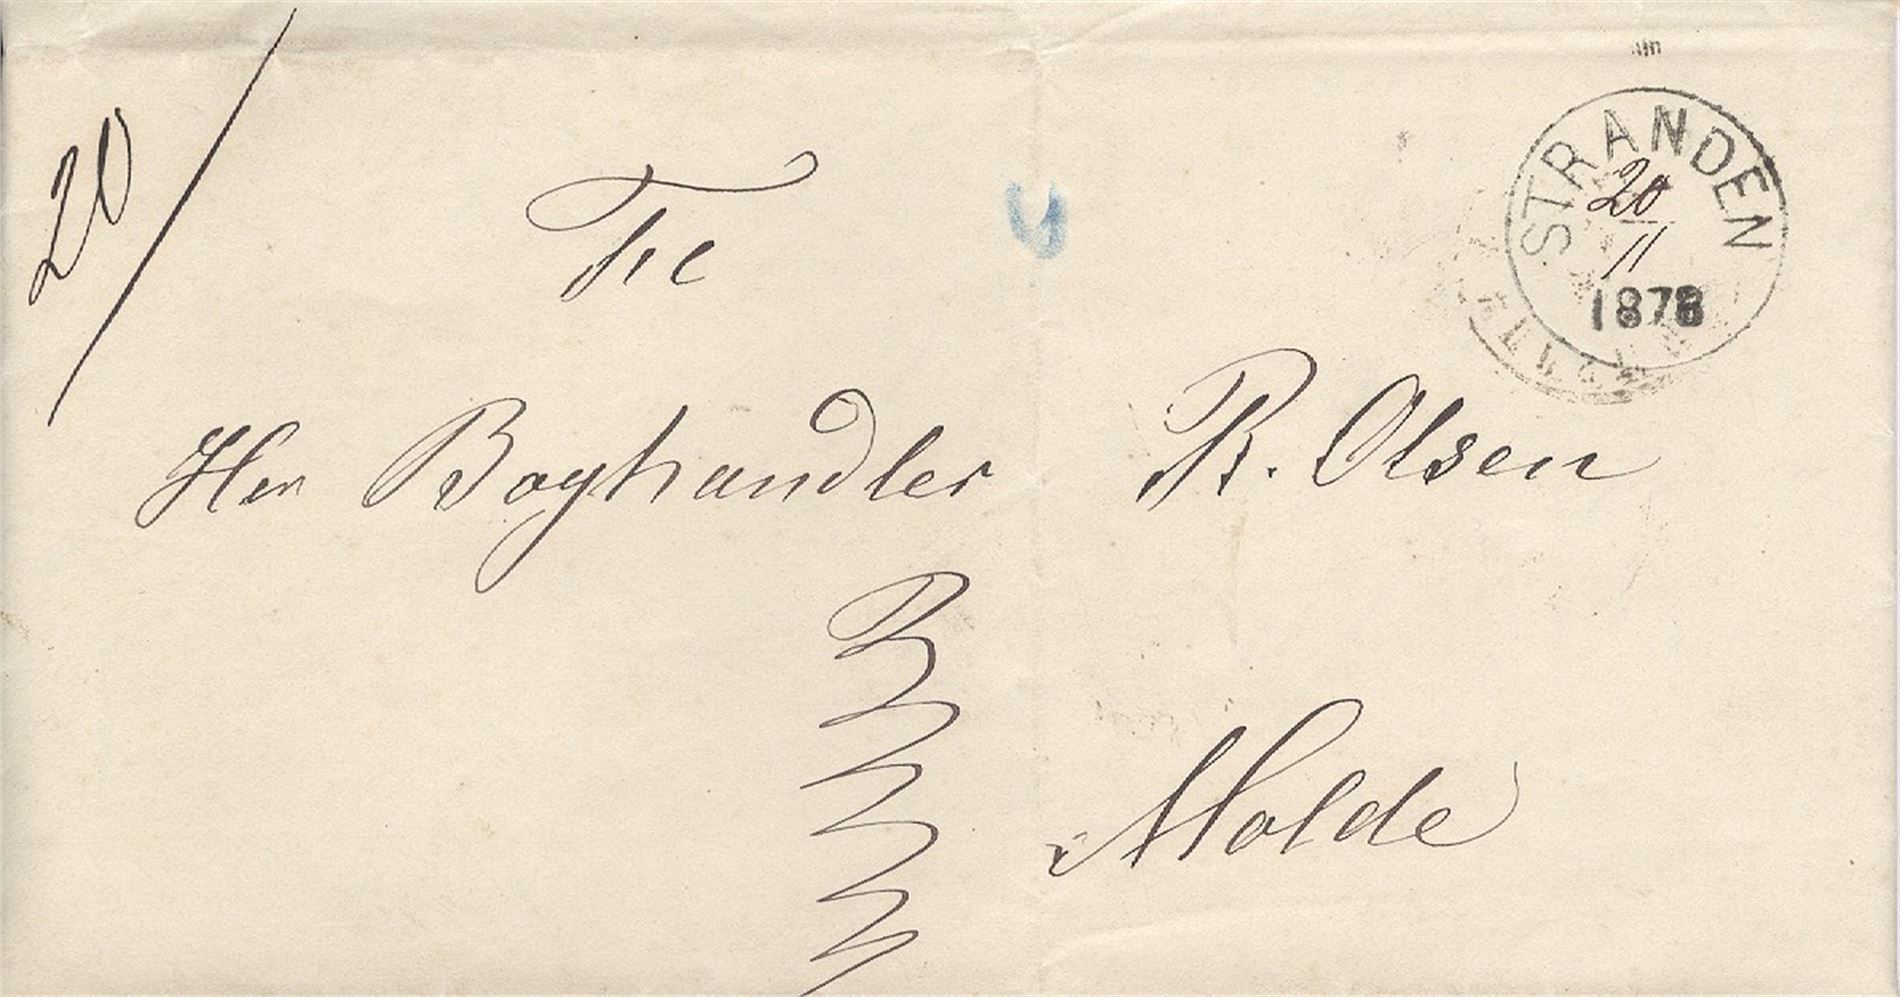 20
STRANDEN
20
11
1878
Til
Herr Boghandler R. Olsen
Molde